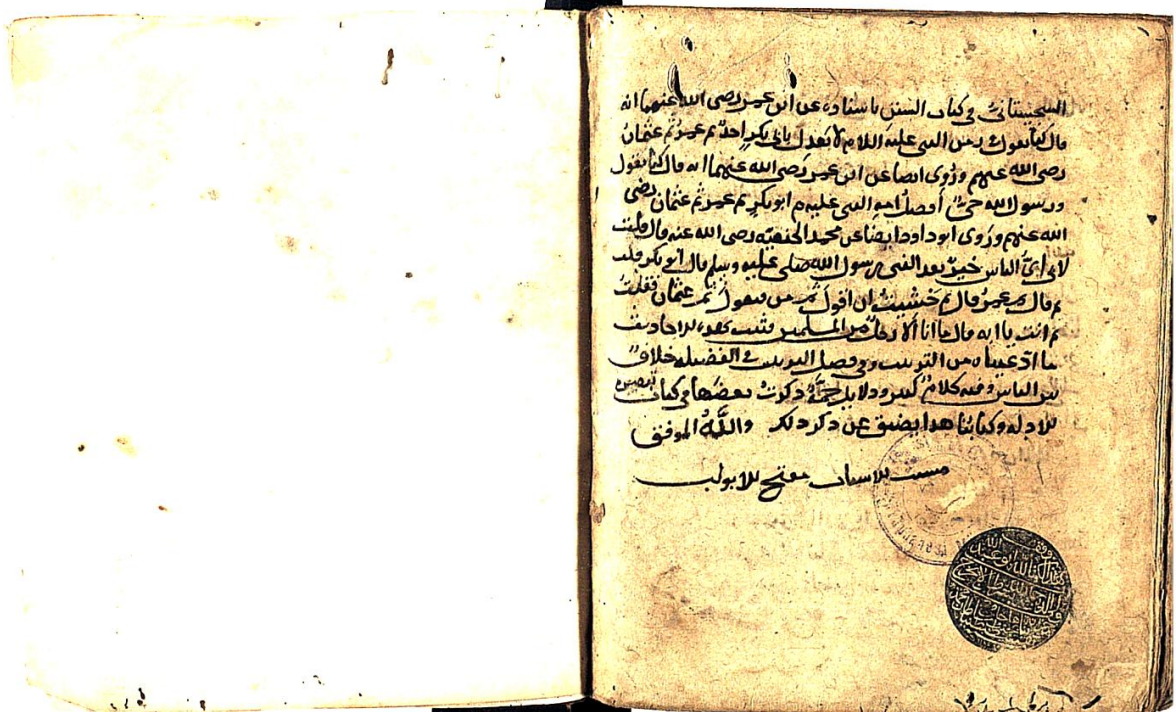 السجستاني في كتاب السنن باسناده عن ابن عمر رضى الله عنهما انه
قال كنا نقول في زمن النبي عليه السلام لا نعدل بابي بكر احد ثم عمر ثم عثمان
رضى الله عنهم وروى ايضا عن ابن عمر رضى الله عنهما انه قال كنا نقول
ورسول الله حي افضل امة النبي عليه م ابو بكر ثم عمر ثم عثمان رضى
الله عنهم وروى ابو داود ايضا عن محمد الحنفيه رضى الله عنه قال قلت
لابي اي الناس خير بعد النبي رسول الله صلى عليه وسلم قال ابو بكر قلت
ثم قال ثم عمر قال ثم خشيت ان اقول ثم من فيقول ثم عثمان فقلت
ثم انت يا ابه قال ما انا الا رجل من المسلمين فثبت بهذه الاحاديث
ما ادعيناه من الترتيب وفي فصل الترتيب في الفضيله خلاف
بين الناس وفيه كلام كثير ودلايل جمة ذكرت بعضها في كتاب تبصرة
الادله وكتابنا هذا يضيق عن ذكر ذلك والله الموفق
الاسباب مفتح الابواب